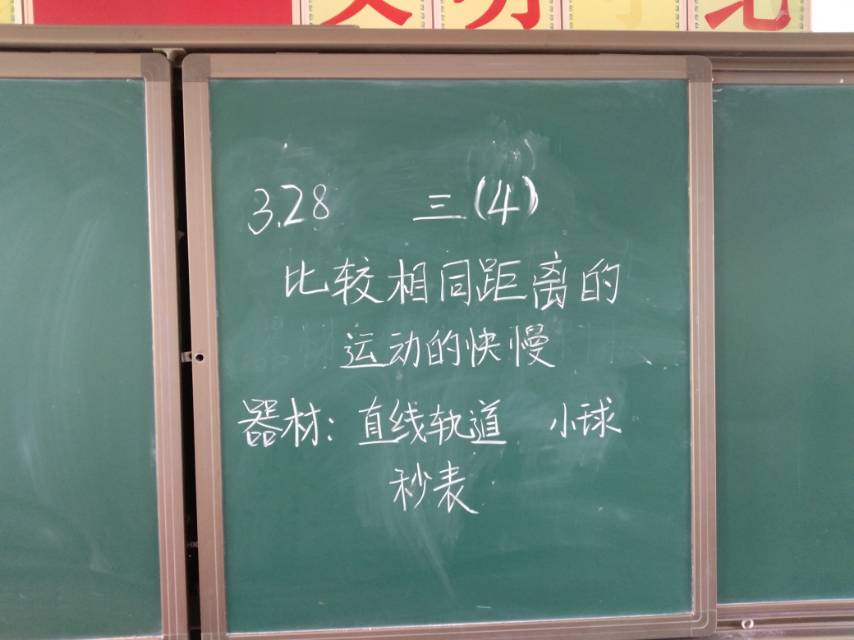 3.28 三(4)
比较相同距离的
运动的快慢
器材：直线轨道 小球
秒表